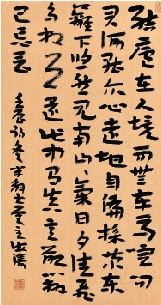 結廬在人境而無車馬喧問
君何能爾心遠地自偏採菊東
籬下悠然見南山山氣日夕佳飛
鳥相與還此中有真意欲辨
已忘言